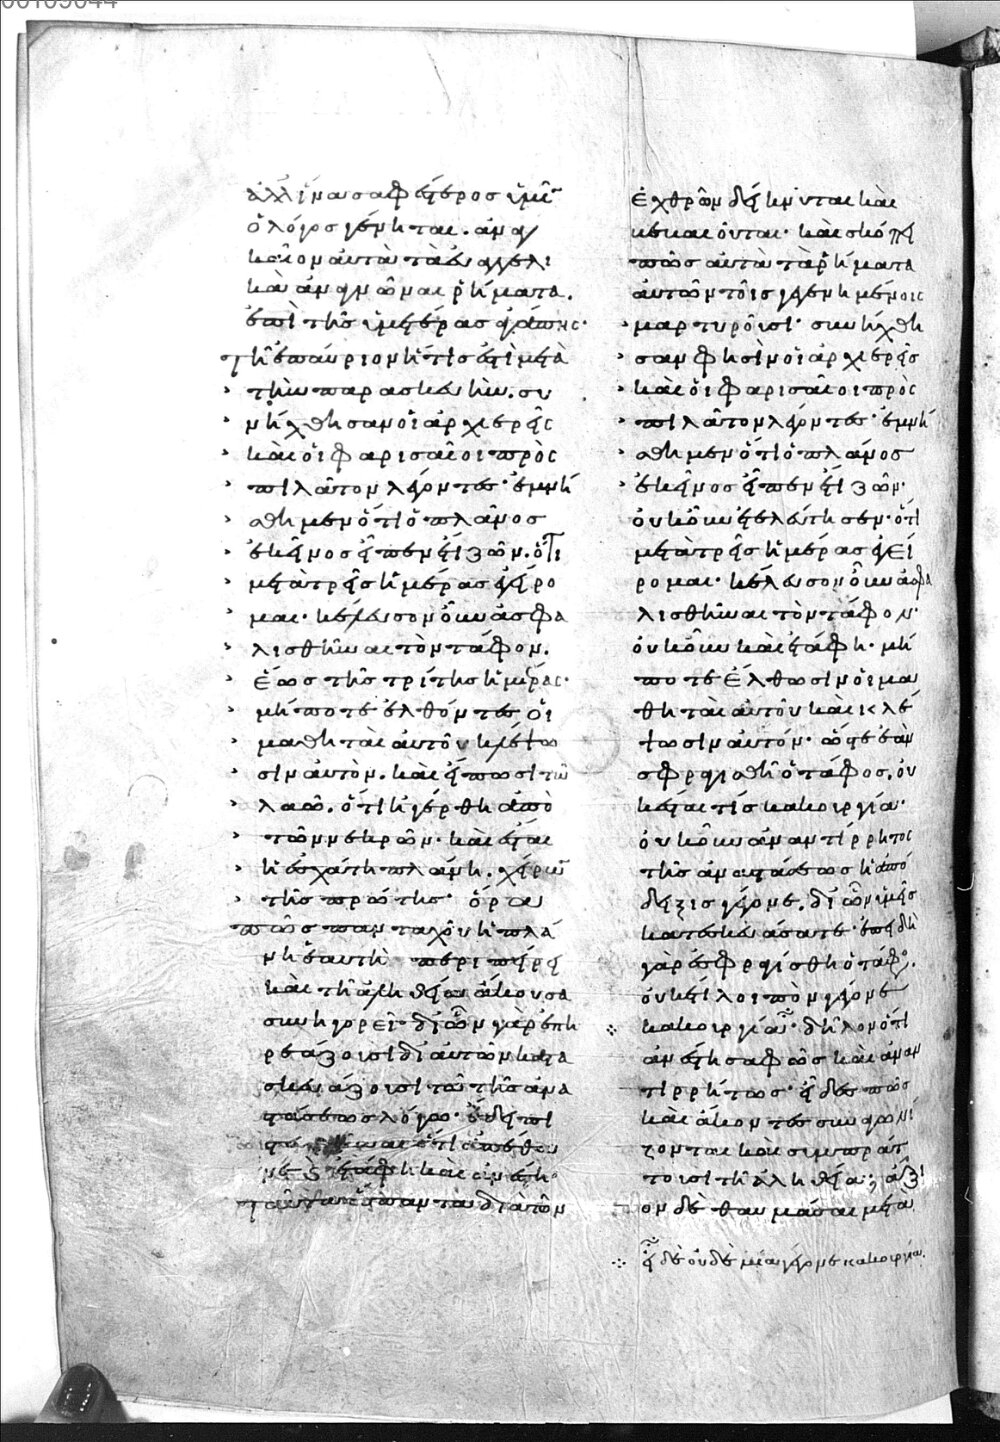 ἀλλ' ἵνα σαφέστερος ὑμῖν
ὁ λόγος γένηται. ἀναγ
καῖον αὐτὰ τὰ εὐαγγελι
κὰ ἀναγνῶναι ῥήματα.
ἐπὶ τῆς ὑμετέρας ἀγάπης·
τῆ ἐπαύριον ἥτις ἐστὶ μετὰ
τὴν παρασκευὴν. συ
νήχθησαν οἱ ἀρχιερεῖς
καὶ οἱ φαρισαῖοι πρὸς
πιλάτον λέγοντες· ἐμνή
σθημεν ὅτι ὁ πλάνος
ἐκεῖνος εἶπεν ἔτι ζῶν. ὅτι
μετὰ τρεῖς ἡμέρας ἐγείρο
μαι· κέλευσον οὖν ἀσφα
λισθῆναι τὸν τάφον.
ἕως τῆς τρίτης ἡμέρας·
μήποτε ἐλθόντες οἱ
μαθηταὶ αὐτοῦ κλέψω
σιν αὐτὸν. καὶ εἴπωσι τῶ
λαῶ. ὅτι ἠγέρθη ἀπὸ
τῶν νεκρῶν· καὶ ἔσται
ἡ ἐσχάτη πλάνη. χείρων
τῆς πρώτης· ὅρα
πῶς πανταχοῦ ἡ πλά
νη ἑαυτῆ περιπείρε
ται καὶ τῆ ἀληθεία ἄκουσα
συνηγορεῖ· δι' ὧν γὰρ ἐπη
ρεάζουσι δι' αὐτῶν κατα
σκευάζουσι τὸν τῆς ἀνα
στάσεως λόγον·
ὅτι ἀπέθα
νε καὶ ἐτάφη καὶ ἀνέστη·
ταῦτα ἅπαντα διὰ τῶν
ἐχθρῶν δείκνυται καὶ
κέκαιονται· καὶ σκόπει
πῶς αὐτὰ τὰ ῥήματα
αὐτῶν τοῖς γεγενημένοις
μαρτυροῦσι· συνήχθη
σαν φησὶν οἱ ἀρχιερεῖς
καὶ οἱ φαρισαῖοι πρὸς
πιλάτον λέγοντες· ἐμνή
σθημεν ὅτι ὁ πλάνος
ἐκεῖνος εἶπεν ἔτι ζῶν·
οὐκοῦν ἐτελεύτησεν· ὅτι
μετὰ τρεῖς ἡμέρας ἐγεί
ρομαι· κέλευσον οὖν ἀσφα
λισθῆναι τὸν τάφον·
οὐκοῦν καὶ ἐτάφη· μή
ποτε ἔλθωσιν οἱ μα
θηταὶ αὐτοῦ καὶ κλέ
ψωσιν αὐτόν· ὥστε ἐὰν
σφραγισθῆ ὁ τάφος. οὐ
κ ἔσται τίς κακουργία·
οὐκοῦν ἀναντίρρητος
τῆς ἀναστάσεως ἡ ἀπό
δειξις γέγονε. δι' ὧν ὑμεῖς
κατεσκευάσατε· ἐπειδὴ
γὰρ ἐσφραγίσθη ὁ τάφος.
οὐκέτι λοιπὸν γέγονε
κακουργία· δηλονότι
ἀνέστη σαφῶς καὶ ἀναν
τιρρήτως· εἶδες πῶς
καὶ ἄκοντες συναγωνί
ζονται καὶ συμπράτ
τουσι τῆ ἀληθεία; ἄξι
ον δὲ θαυμάσαι μετὰ
εἰ δὲ οὐδὲ μία γέγονε κακουργία.